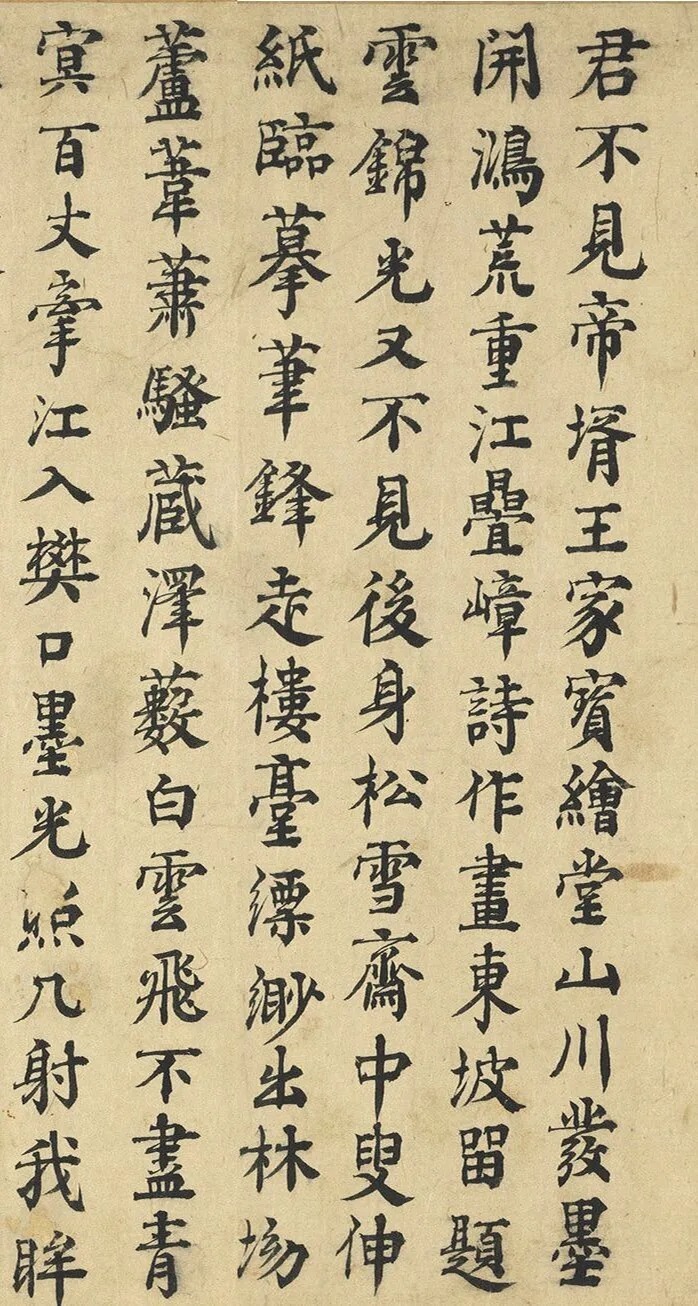 君不見帝壻王家寳繪堂山川發墨
開鴻荒重江疊嶂詩作畫東坡留題
雲錦光又不見後身松雪齋中叟伸
紙臨摹筆鋒走樓臺縹緲出林坳
蘆葦蕭騷蔵澤藪白雲飛不盡青
冥百丈牽江入樊口墨光照几射我眸